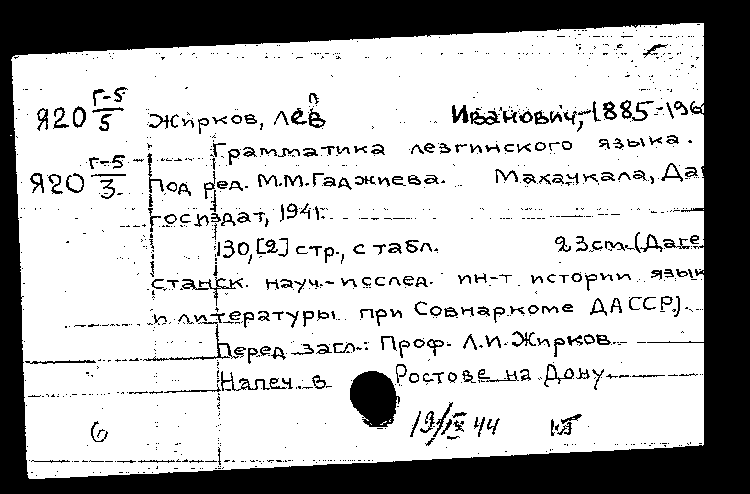 Я20 Г-5/5
Жирков, Лев Иванович, 1885-196
Грамматика лезгинского языка.
Я20 Г-5/3.
Под ред. М.М.Гаджиева. Махачкала, Даг
госиздат, 1941.
130,[2] стр., с табл. 23 cm. (Даге
станск. науч.-исслед. ин-т истории язык
и литературы при Совнаркоме ДАССР).
Перед загл.: Проф. Л.И.Жирков
Напеч. в Ростове на Дону
6 19/IX 44